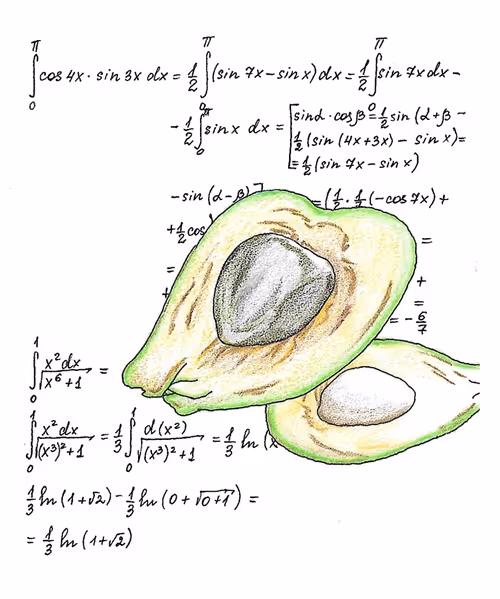 ∫₀^π cos 4x · sin 3x dx = 1/2 ∫₀^π (sin 7x − sin x) dx = 1/2 ∫₀^π sin 7x dx −
− 1/2 ∫₀^π sin x dx = [sin α · cos β = 1/2 sin (α + β −
1/2 (sin (4x + 3x) − sin x) =
= 1/2 (sin 7x − sin x)
− sin (α − β)] = (1/2 · 1/7 (− cos 7x) +
+ 1/2 cos
=
=
+
+
=
= − 6/7
∫₀^1 x² dx / √(x⁶ + 1) =
∫₀^1 x² dx / √((x³)² + 1) = 1/3 ∫₀^1 d(x²) / √((x³)² + 1) = 1/3 ln (x
1/3 ln (1 + √2) − 1/3 ln (0 + √(0 + 1)) =
= 1/3 ln (1 + √2)